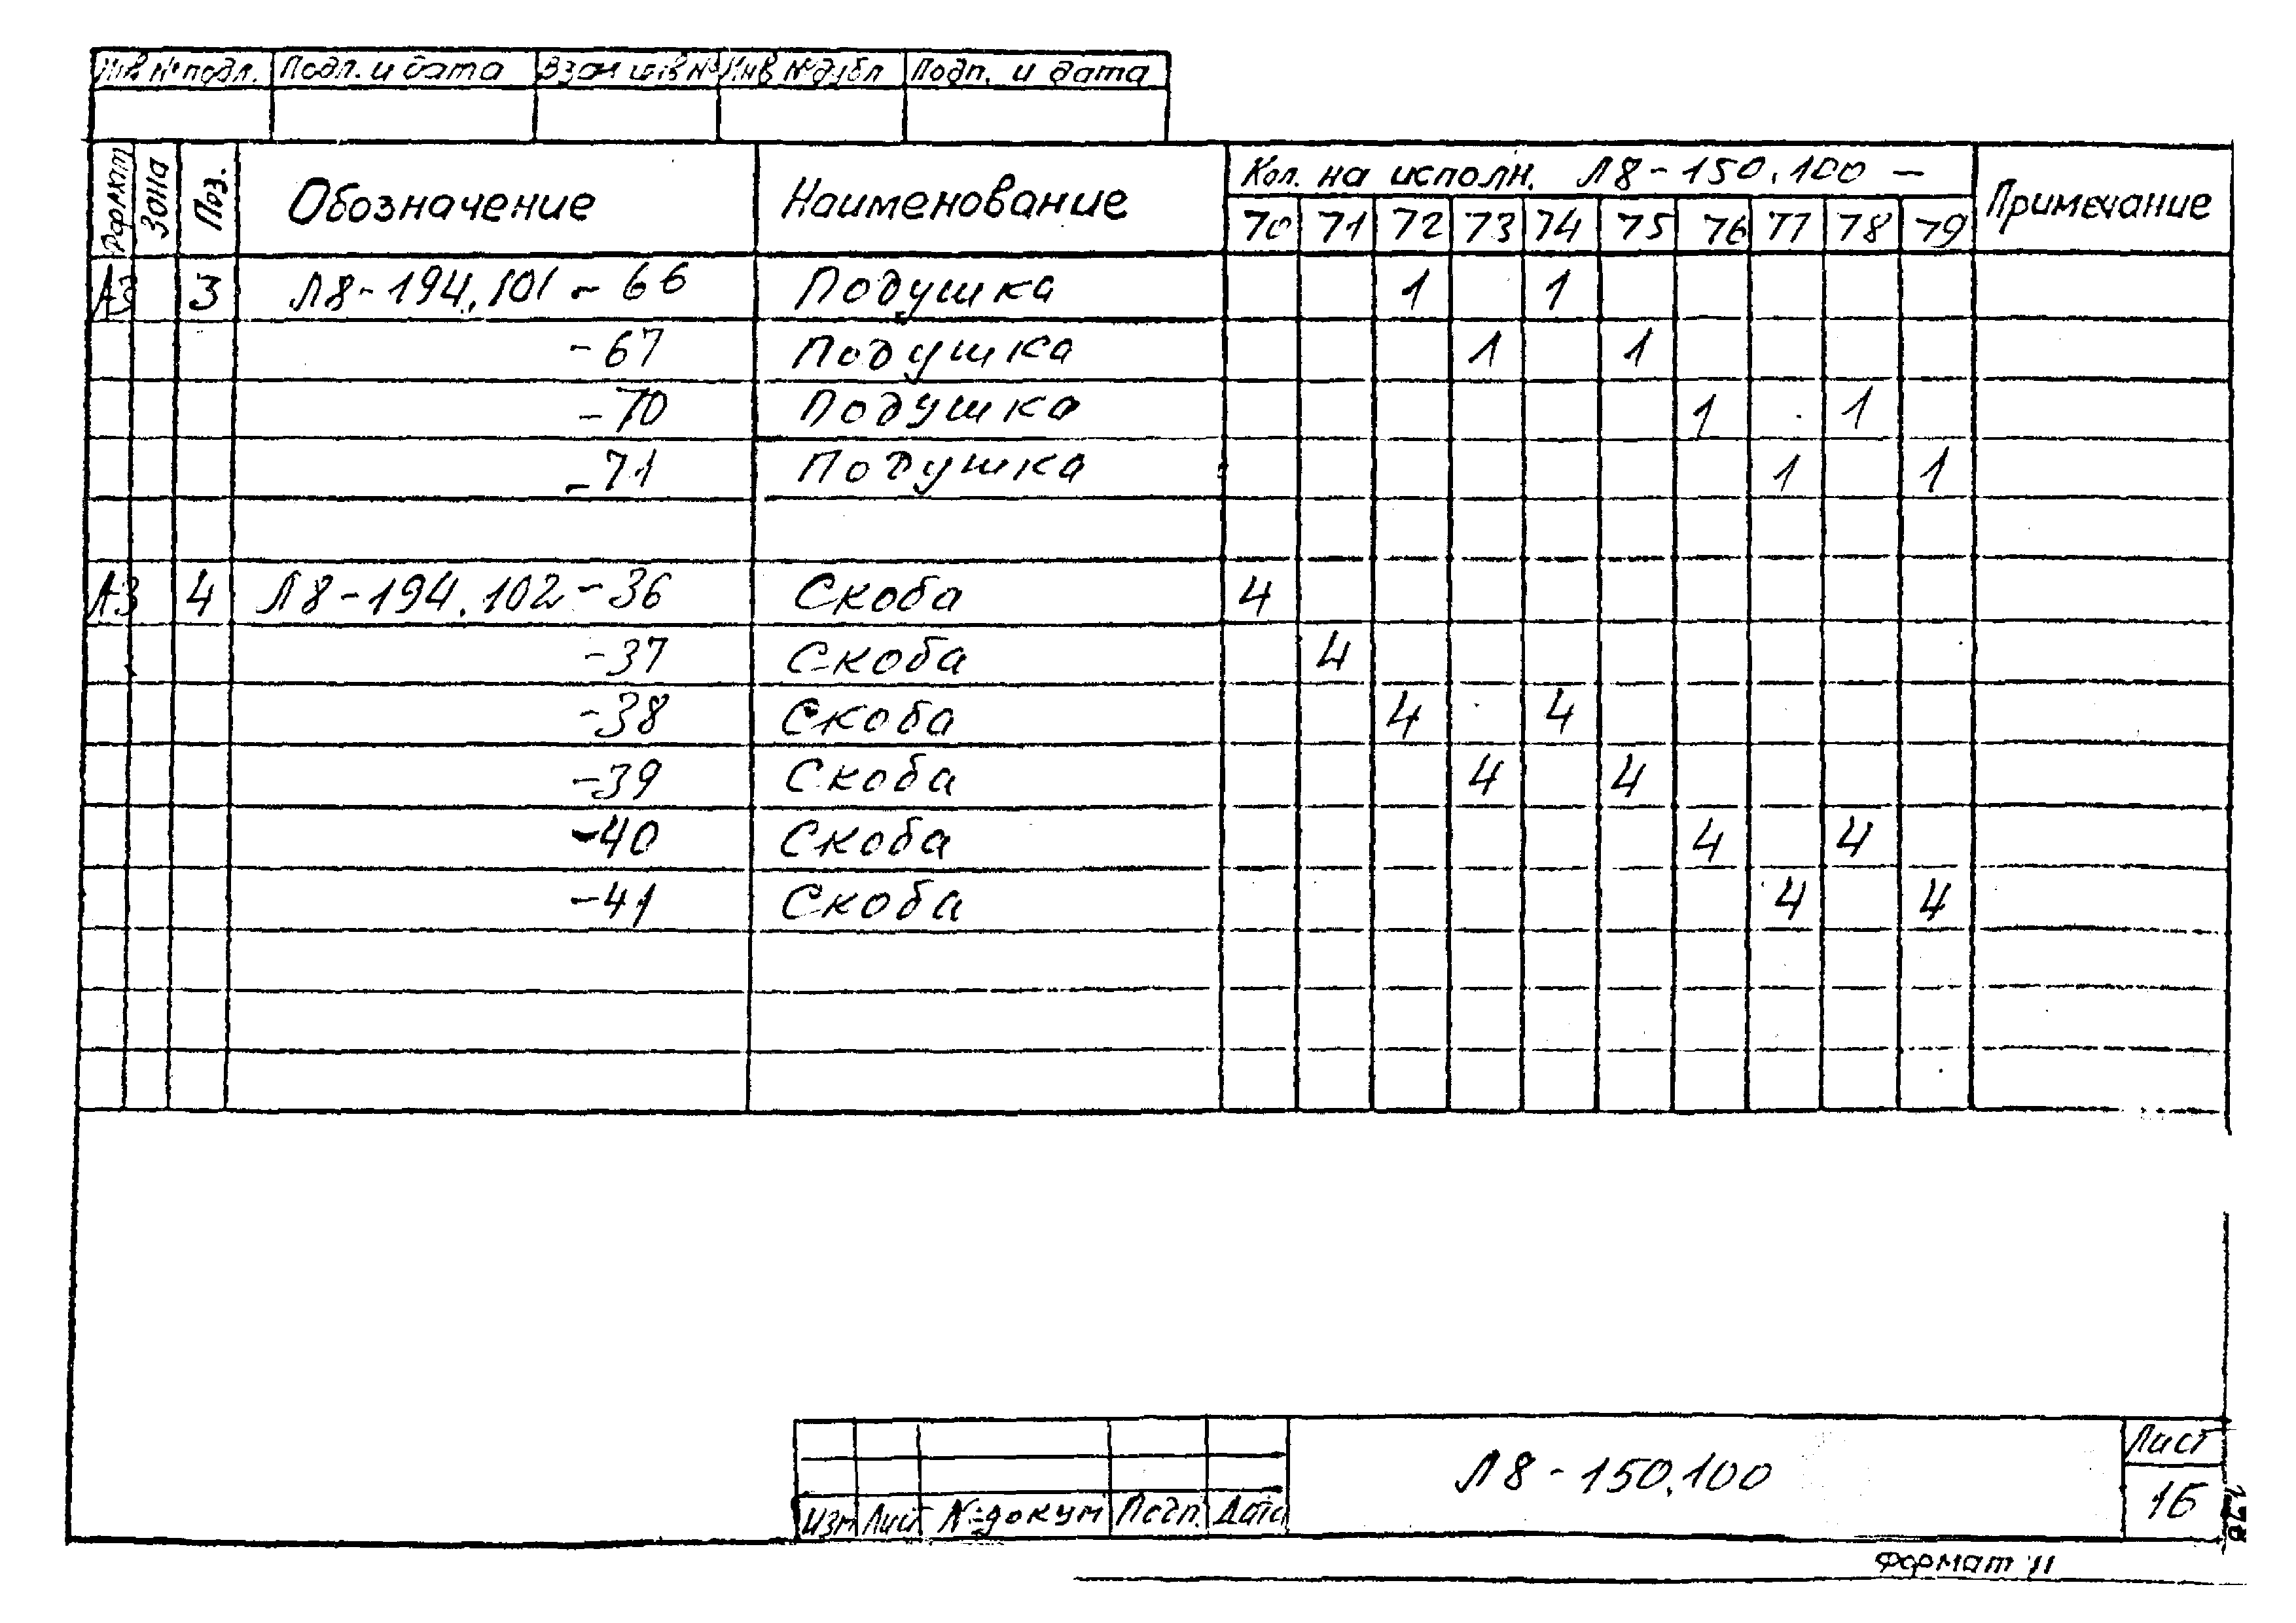 Инв № подл. Подп. и дата Взам инв № Инв № дубл Подп. и дата
Формат Зона Поз. Обозначение Наименование Кол. на исполн. Л8-150.100 — Примечание
70 71 72 73 74 75 76 77 78 79
А3 3 Л8-194.101 - 66 Подушка 1 1
-67 Подушка 1 1
-70 Подушка 1 1
-71 Подушка 1 1
А3 4 Л8-194.102-36 Скоба 4
-37 Скоба 4
-38 Скоба 4 4
-39 Скоба 4 4
-40 Скоба 4 4
-41 Скоба 4 4
Изм Лист № докум Подп. Дата
Л8-150.100
Лист
16
Формат 11